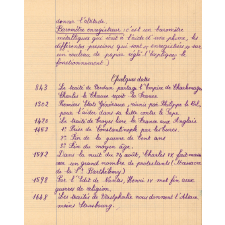 donner l'altitude.
Baromètre enregistreur (c'est un baromètre
métallique qui sait à l'aide d'une plume, les
différentes pressions qui sont enregistrées sur
un rouleau de papier réglé (Expliquez le
fonctionnement)
Quelques dates
843 Le traité de Verdun partage l'empire de Charlemagne
Charles le Chauve reçoit la France.
1302 Premiers Etats Généraux, réunis par Philippe le Bel,
pour l'aider dans sa lutte contre le Pape
1420 Le traité de Troyes livre la France aux Anglais
1453 1° Prise de Constantinople par les turcs.
2° Fin de la guerre de cent ans
3° Fin du moyen âge.
1572 Dans la nuit du 24 août, Charles IX fait massacrer
un grand nombre de protestants (Massacre
de la St Barthélemy)
1598 Par l'Edit de Nantes, Henri IV met fin aux
guerres de religion.
1648 Les traités de Westphalie nous donnent l'Alsace
moins Strasbourg.